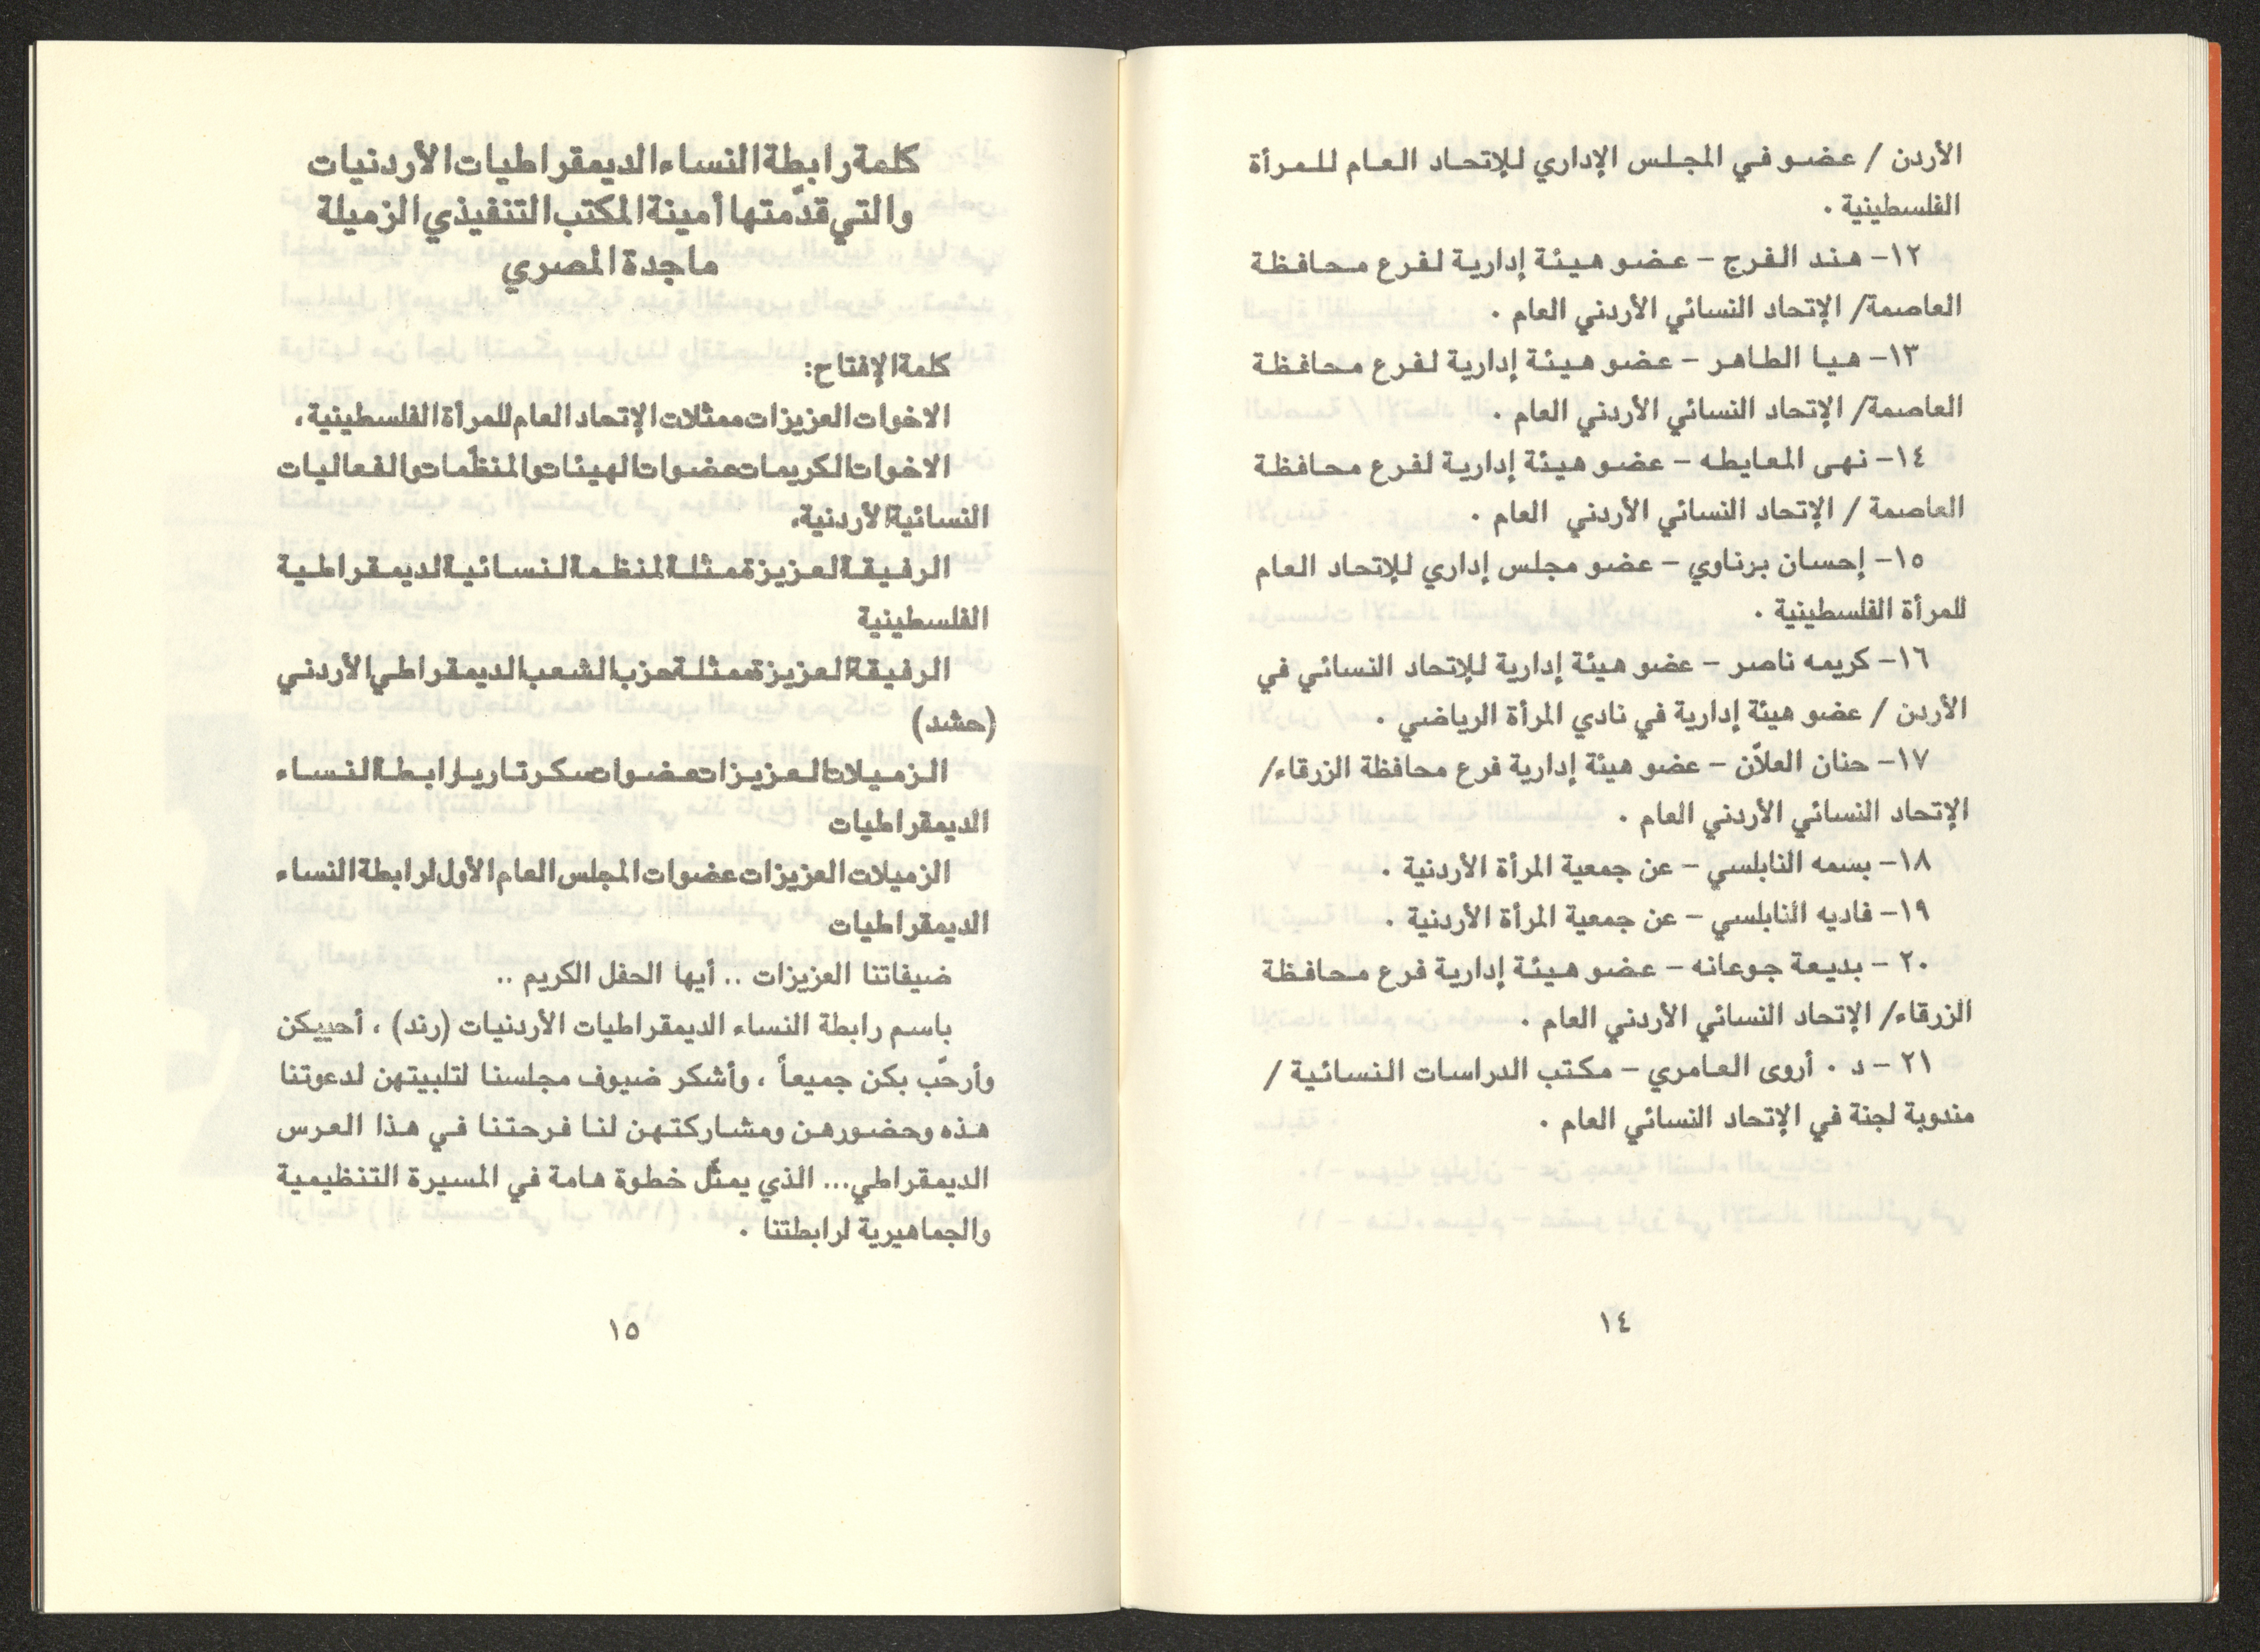 الأردن / عضو في المجلس الإداري للإتحاد العام للمرأة
الفلسطينية .
١٢- هند الفرج - عضو هيئة إدارية لفرع محافظة
العاصمة/ الإتحاد النسائي الأردني العام .
١٣- هيا الطاهر - عضو هيئة إدارية لفرع محافظة
العاصمة/ الإتحاد النسائي الأردني العام .
١٤- نهى المعايطه - عضو هيئة إدارية لفرع محافظة
العاصمة / الإتحاد النسائي الأردني العام .
١٥- إحسان برناوي - عضو مجلس إداري للإتحاد العام
للمرأة الفلسطينية .
١٦- كريمه ناصر - عضو هيئة إدارية للإتحاد النسائي في
الأردن / عضو هيئة إدارية في نادي المرأة الرياضي .
١٧- حنان العلاّن - عضو هيئة إدارية فرع محافظة الزرقاء/
الإتحاد النسائي الأردني العام .
١٨- بسمه النابلسي - عن جمعية المرأة الأردنية .
١٩- فاديه النابلسي - عن جمعية المرأة الأردنية .
٢٠- بديعة جوعانه - عضو هيئة إدارية فرع محافظة
الزرقاء/ الإتحاد النسائي الأردني العام .
٢١- د . أروى العامري - مكتب الدراسات النسائية /
مندوبة لجنة في الإتحاد النسائي العام .
١٤
كلمة رابطة النساء الديمقراطيات الأردنيات
والتي قدّمتها أمينة المكتب التنفيذي الزميلة
ماجدة المصري
كلمة الإفتتاح:
الاخوات العزيزات ممثلات الإتحاد العام للمرأة الفلسطينية ،
الاخوات الكريمات عضوات الهيئات والمنظّمات والفعاليات
النسائية الأردنية،
الرفيقة العزيزة ممثلة المنظمة النسائية الديمقراطية
الفلسطينية
الرفيقة العزيزة ممثلة حزب الشعب الديمقراطي الأردني
(حشد)
الزميلات العزيزات عضوات سكرتاريا رابطة النساء
الديمقراطيات
الزميلات العزيزات عضوات المجلس العام الأول لرابطة النساء
الديمقراطيات
ضيفاتنا العزيزات .. أيها الحفل الكريم ..
باسم رابطة النساء الديمقراطيات الأردنيات (رند) ، أحييكن
وأرحّب بكن جميعاً ، وأشكر ضيوف مجلسنا لتلبيتهن لدعوتنا
هذه وحضورهن ومشاركتهن لنا فرحتنا في هذا العرس
الديمقراطي... الذي يمثّل خطوة هامة في المسيرة التنظيمية
والجماهيرية لرابطتنا .
١٥